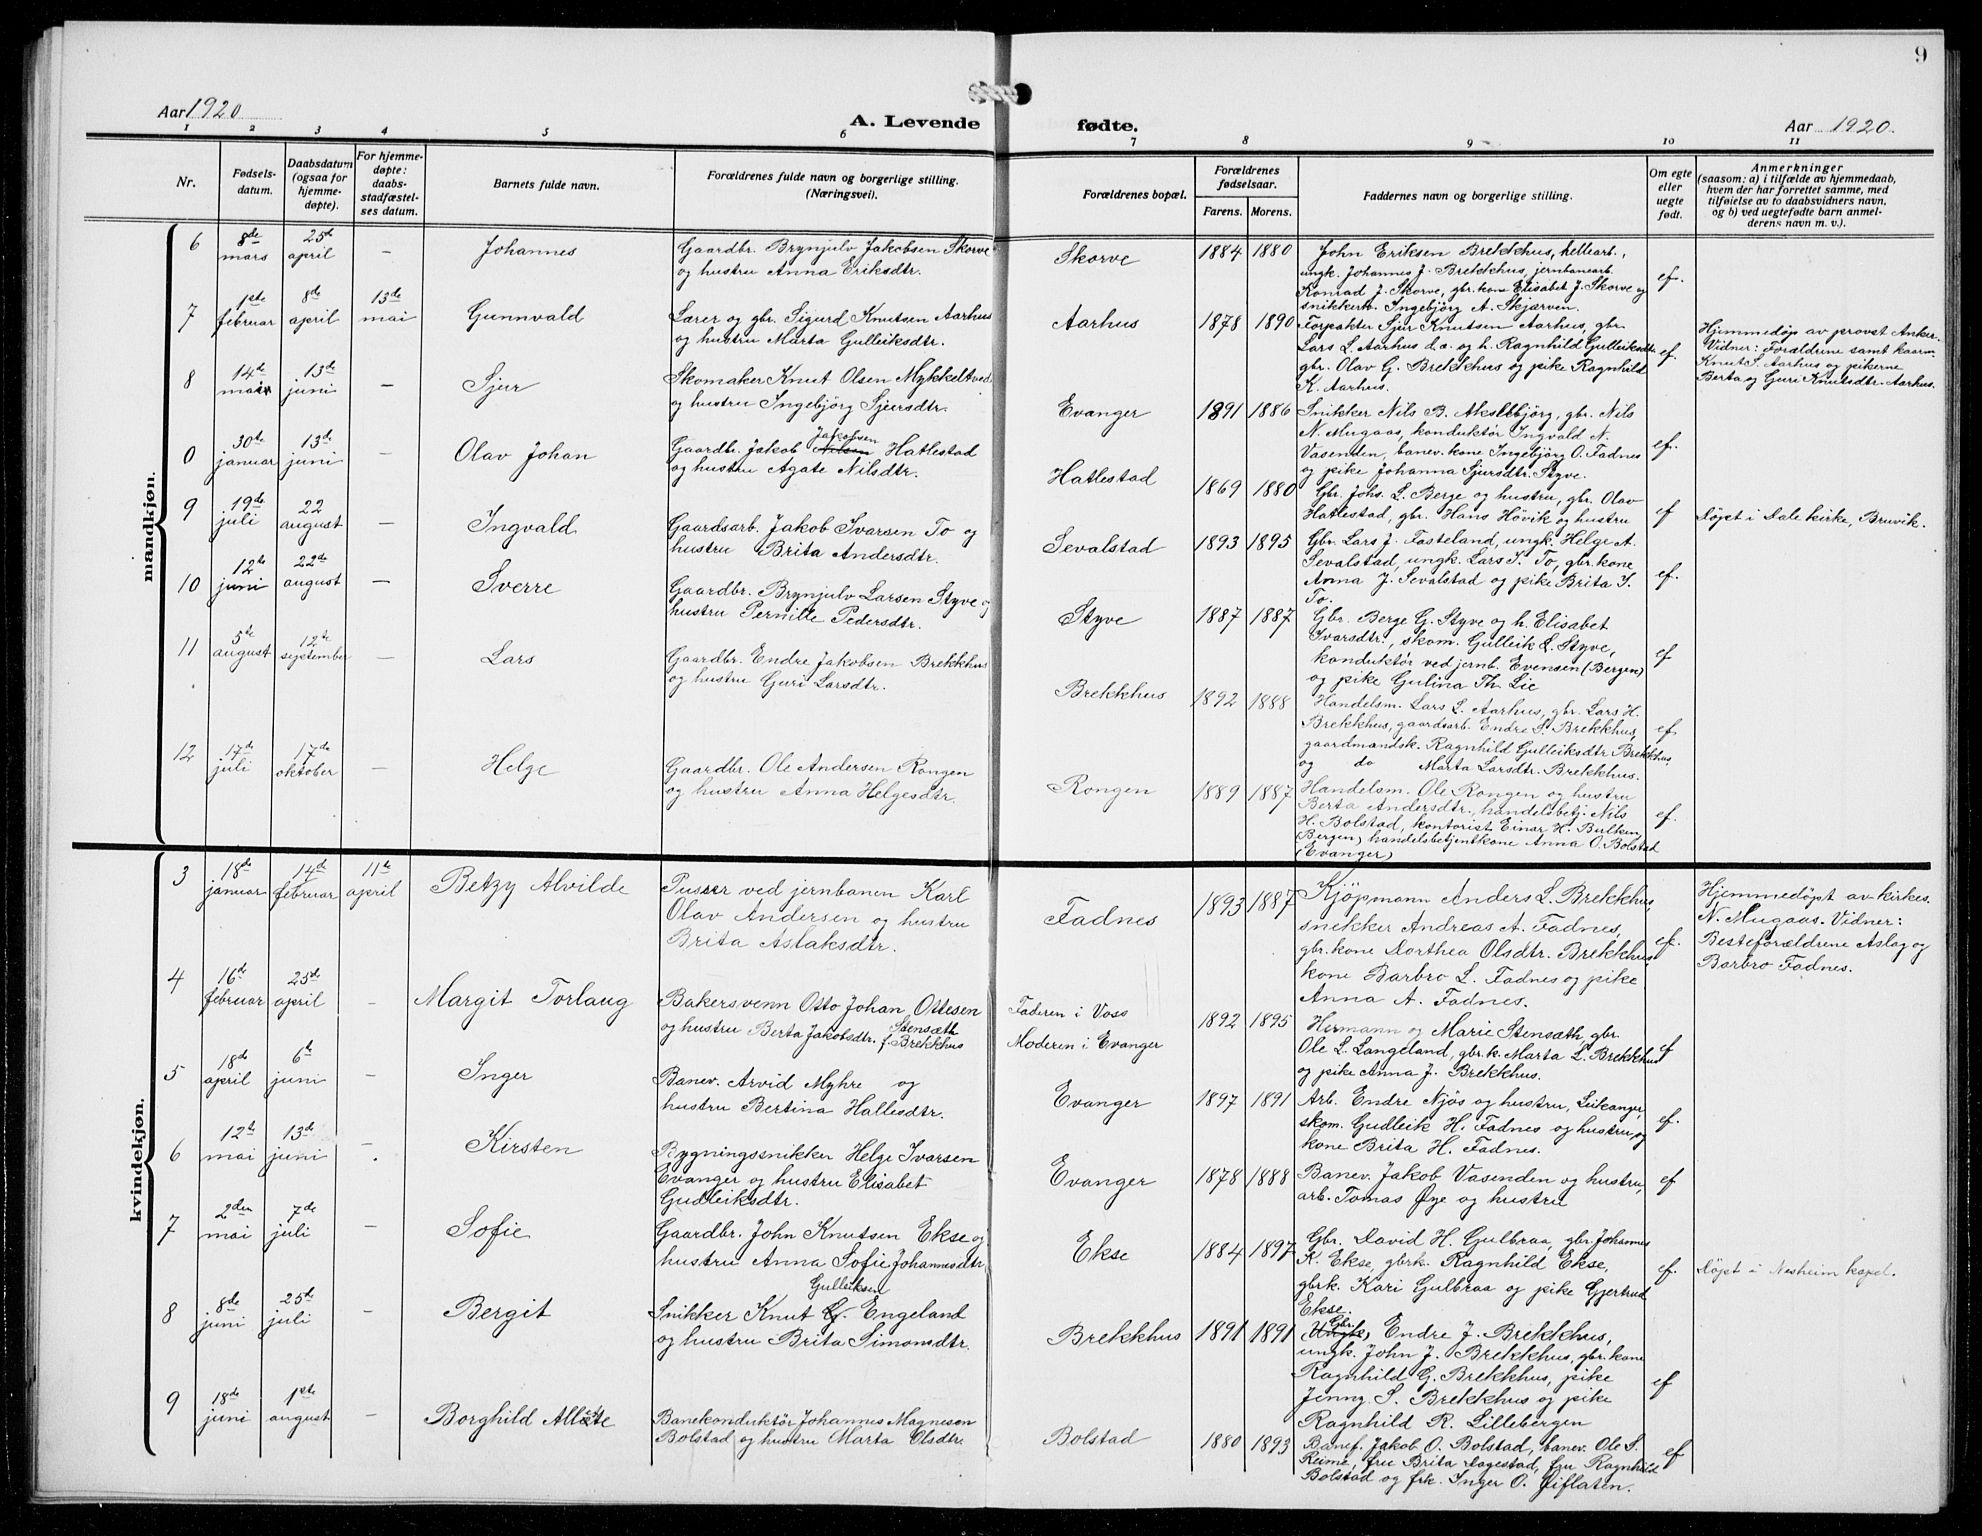 9
Aar 1920
A. Levende
fødte.
Aar 1920.
1 2 3 4 5 6 7 8 9 10 11
Nr.
Fødsels-
datum.
Daabsdatum
(ogsaa for
hjemme-
døpte).
For hjemme-
døpte:
daabs-
stadfæstel-
ses datum.
Barnets fulde navn.
Forældrenes fulde navn og borgerlige stilling.
(Næringsvei).
Forældrenes bopæl.
Forældrenes
fødselsaar.
Farens. Morens.
Faddernes navn og borgerlige stilling.
Om egte
eller
uegte
født.
Anmerkninger
(saasom: a) i tilfælde av hjemmedaab,
hvem der har forrettet samme, med
tilføielse av to daabsvidners navn,
og b) ved uegtefødte barn anmel-
derens navn m. v.).
mandkjøn.
6
8de
mars
25de
april
–
Johannes
Gaardbr. Brynjulv Jakobsen Skorve
og hustru Anna Eriksdtr.
Skorve
1884 1880
John Eriksen Brekkhus, hellearb.,
ungk. Johannes J. Brekkhus, jernbanearb.
Konrad J. Skorve, gbr. kone Elisabet J. Skorve og
snikkerh. Ingebjörg A. Skjerven.
ef.
7
1ste
februar
8de
april
13de
mai
Gunnvald
Lærer og gbr. Sigurd Knutsen Aarhus
og hustru Marta Gulleiksdtr.
Aarhus
1878 1890
Forpakter Sjur Knutsen Aarhus, gbr.
Lars L. Aarhus d.æ. og h. Ragnhild Gulleiksdtr.
gbr. Olav G. Brekkhus og pike Ragnhild
K. Aarhus.
ef.
Hjemmedøp av provst Anker.
Vidner: Forældrene samt kaarm.
Knut S. Aarhus og pikerne
Berta og Guri Knutsdtr. Aarhus.
8
14de
mai
13de
juni
–
Sjur
Skomaker Knut Olsen Mykkeltved
og hustru Ingebjörg Sjursdtr.
Evanger
1891 1886
Snikker Nils B. Akselbjörg, gbr. Nils
N. Mugaas, konduktör Ingvald N.
Vasenden, banev. kone Ingebjörg O. Fadnes
og pike Johanna Sjursdtr. Styve.
ef.
0
30te
januar
13de
juni
–
Olav Johan
Jakobsen
Gaardbr. Jakob Nilsen Hatlestad
og hustru Agate Nilsdtr.
Hatlestad
1869 1880
Gbr. Johs. L. Berge og hustru, gbr. Olav
Hatlestad, gbr. Hans Hövik og hustru
ef
Døpt i Dale kirke, Bruvik.
9
19de
juli
22
august
–
Ingvald
Gaardsarb. Jakob Ivarsen To og
hustru Brita Andersdtr.
Sevalstad
1893 1895
Gbr. Lars J. Fasteland, ungk. Helge A.
Sevalstad, ungk. Lars I. To, gbr. kone
Anna J. Sevalstad og pike Brita I.
To.
ef.
10
12te
juni
22de
august
–
Sverre
Gaardbr. Brynjulv Larsen Styve og
hustru Pernille Pedersdtr.
Styve
1887 1887
Gbr. Berge G. Styve og h. Elisabet
Ivarsdtr., skom. Gulleik L. Styve,
konduktör ved jernb. Evensen (Bergen)
og pike Gulina Th. Lie
ef
11
5te
august
12te
september
–
Lars
Gaardbr. Endre Jakobsen Brekkhus
og hustru Guri Larsdtr.
Brekkhus
1892 1888
Handelsm. Lars L. Aarhus, gbr. Lars H.
Brekkhus, gaardsarb. Endre L. Brekkhus,
gaardmandsk. Ragnhild Gulleiksdtr Brekkhus
og do Marta Larsdtr. Brekkhus.
ef.
12
17de
juli
17de
oktober
–
Helge
Gaardbr. Ole Andersen Rongen
og hustru Anna Helgesdtr.
Rongen
1889 1887
Handelsm. Ole Rongen og hustru
Berta Andersdtr., handelsbetj. Nils
H. Bolstad, kontorist Einar H. Bulken
(Bergen) handelsbetjentkone Anna O. Bolstad
(Evanger)
ef.
kvindekjøn.
3
18de
januar
14de
februar
11te
april
Betzy Alvilde
Pusser ved jernbanen Karl
Olav Andersen og hustru
Brita Aslaksdtr.
Fadnes
1893 1887
Kjöpmann Anders L. Brekkhus,
snekker Andreas A. Fadnes,
gbr. kone Dorthea Olsdtr. Brekkhus,
kone Barbro L. Fadnes og pike
Anna A. Fadnes.
ef.
Hjemmedøpt av kirkes.
N. Mugaas. Vidner:
Besteforældrene Aslag og
Barbro Fadnes.
4
16de
februar
25de
april
–
Margit Torlaug
Bakersvenn Otto Johan Ottesen
Stensæth
og hustru Berta Jakobsdtr. f. Brekkhus
Faderen i Voss
Moderen i Evanger
1892 1895
Hermann og Marie Stensæth, gbr.
Ole L. Langeland, gbr. k. Marta L. Brekkhus
og pike Anna J. Brekkhus.
5
18de
april
6te
juni
–
Inger
Banev. Arvid Myhre og
hustru Bertina Hallesdtr.
Evanger
1897 1891
Arb. Endre Njøs og hustru, Leikanger,
skom. Gudleik H. Fadnes og hustru og
kone Brita H. Fadnes.
ef.
6
12te
mai
13de
juni
–
Kirsten
Bygningssnikker Helge Ivarsen
Evanger og hustru Elisabet
Gudleiksdtr.
Evanger
1878 1888
Banev. Jakob Vasenden og hustru,
arb. Tomas Øye og hustru
ef
7
2den
mai
7de
juli
–
Sofie
Gaardbr. John Knutsen Ekse og
hustru Anna Sofie Johannesdtr.
Ekse
1884 1897
Gbr. David H. Gulbraa, gbr. Johannes
K. Ekse, gbrk. Ragnhild Ekse,
gbrk. Kari Gulbraa og pike Gjertrud
Ekse.
ef.
Døpt i Nesheim kapel.
8
8de
juni
25de
juli
–
Bergit
Gulleiksen
Snikker Knut G. Engeland
og hustru Brita Simonsdtr.
Brekkhus
1891 1891
Gbr.
Endre J. Brekkhus,
ungk. John J. Brekkhus, gbr. kone
Ragnhild G. Brekkhus, pike
Jenny S. Brekkhus og pike
Ragnhild R. Lillebergen
ef
9
18de
juni
1ste
august
–
Borghild
Banekonduktör Johannes Magnesen
Bolstad og hustru Marta Olsdtr.
Bolstad
1880 1893
Banef. Jakob O. Bolstad, banev. Ole S.
Reime, fru Brita Dagestad, fru Ragnhild
Bolstad og frk. Inger O. Jiflaten.
ef